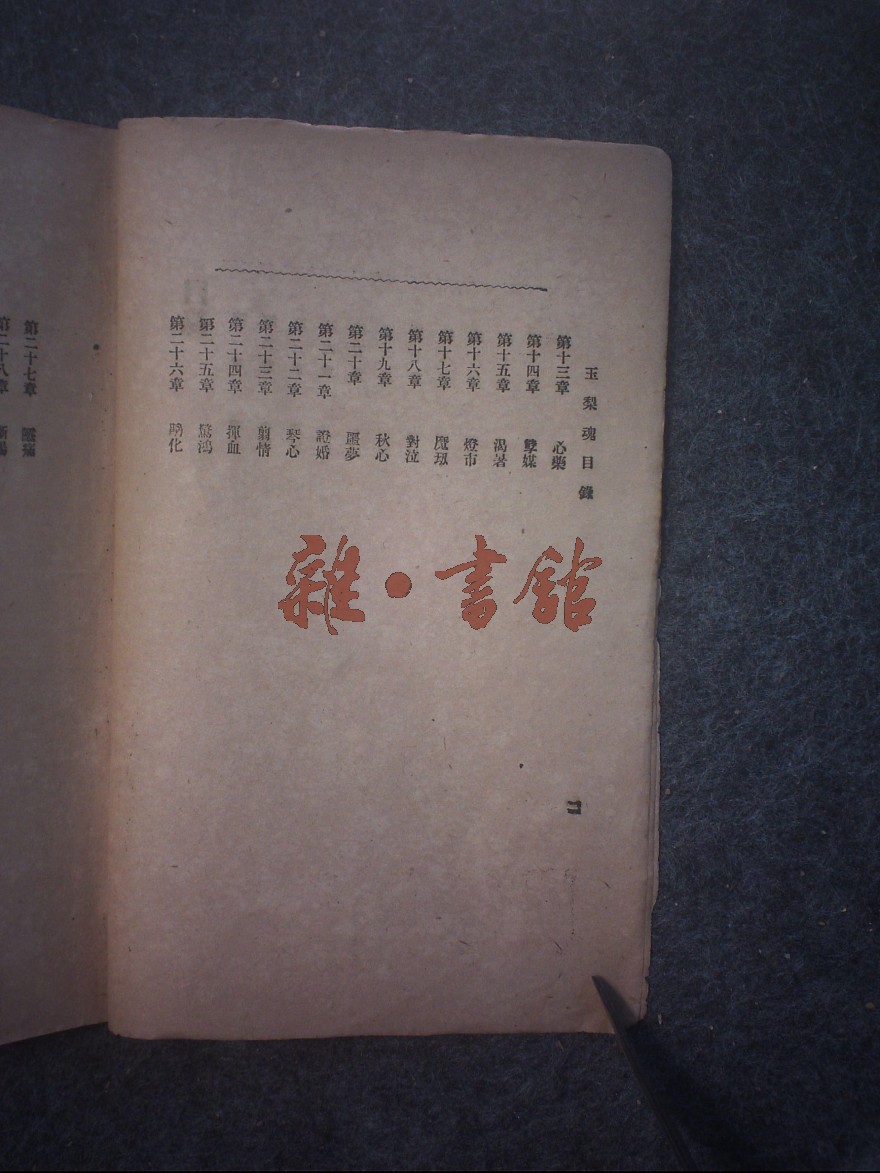 玉梨魂目錄
第十三章 心藥
第十四章 孽媒
第十五章 渴暑
第十六章 燈市
第十七章 魔刧
第十八章 對泣
第十九章 秋心
第二十章 噩夢
第二十一章 證婚
第二十二章 琴心
第二十三章 剪情
第二十四章 揮血
第二十五章 驚鴻
第二十六章 鵑化
二
第二十七章
第二十八章
雜·書館